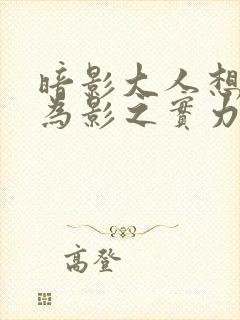 暗影大人想
為影之實力
高登